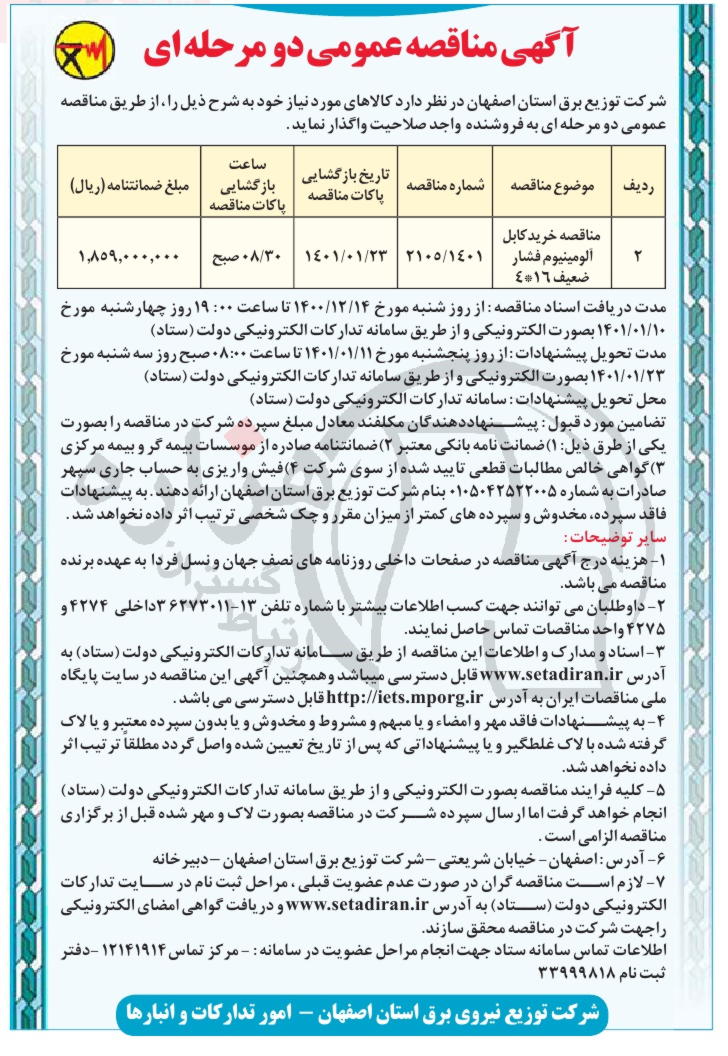 آگهی مناقصه عمومی دو مرحله ای
شرکت توزیع برق استان اصفهان در نظر دارد کالاهای مورد نیاز خود به شرح ذیل را، از طریق مناقصه
عمومی دو مرحله ای به فروشنده واجد صلاحیت واگذار نماید.
ردیف موضوع مناقصه شماره مناقصه تاریخ بازگشایی پاکات مناقصه ساعت بازگشایی پاکات مناقصه مبلغ ضمانتنامه (ریال)
۲ مناقصه خرید کابل آلومینیوم فشار ضعیف ۱۶*۴ ۲۱۰۵/۱۴۰۱ ۱۴۰۱/۰۱/۲۳ ۰۸/۳۰ صبح ۱,۸۵۹,۰۰۰,۰۰۰
مدت دریافت اسناد مناقصه: از روز شنبه مورخ ۱۴۰۰/۱۲/۱۴ تا ساعت ۱۹:۰۰ روز چهارشنبه مورخ
۱۴۰۱/۰۱/۱۰ بصورت الکترونیکی و از طریق سامانه تدارکات الکترونیکی دولت (ستاد)
مدت تحویل پیشنهادات: از روز پنجشنبه مورخ ۱۴۰۱/۰۱/۱۱ تا ساعت ۰۸:۰۰ صبح روز سه شنبه مورخ
۱۴۰۱/۰۱/۲۳ بصورت الکترونیکی و از طریق سامانه تدارکات الکترونیکی دولت (ستاد)
محل تحویل پیشنهادات: سامانه تدارکات الکترونیکی دولت (ستاد)
تضامین مورد قبول: پیشنهاددهندگان مکلفند معادل مبلغ سپرده شرکت در مناقصه را بصورت
یکی از طرق ذیل: ۱) ضمانت نامه بانکی معتبر ۲) ضمانتنامه صادره از موسسات بیمه گر و بیمه مرکزی
۳) گواهی خالص مطالبات قطعی تایید شده از سوی شرکت ۴) فیش واریزی به حساب جاری سپهر
صادرات به شماره ۰۱۰۵۰۴۲۵۲۲۰۰۵ بنام شرکت توزیع برق استان اصفهان ارائه دهند. به پیشنهادات
فاقد سپرده، مخدوش و سپرده های کمتر از میزان مقرر و چک شخصی ترتیب اثر داده نخواهد شد.
سایر توضیحات:
۱- هزینه درج آگهی مناقصه در صفحات داخلی روزنامه های نصف جهان و نسل فردا به عهده برنده
مناقصه می باشد.
۲- داوطلبان می توانند جهت کسب اطلاعات بیشتر با شماره تلفن ۱۳-۳۶۲۷۳۰۱۱ داخلی ۴۲۷۴ و
۴۲۷۵ واحد مناقصات تماس حاصل نمایند.
۳- اسناد و مدارک و اطلاعات این مناقصه از طریق سامانه تدارکات الکترونیکی دولت (ستاد) به
آدرس www.setadiran.ir قابل دسترسی میباشد و همچنین آگهی این مناقصه در سایت پایگاه
ملی مناقصات ایران به آدرس http://iets.mporg.ir قابل دسترسی می باشد.
۴- به پیشنهادات فاقد مهر و امضاء و یا مبهم و مشروط و مخدوش و یا بدون سپرده معتبر و یا لاک
گرفته شده با لاک غلطگیر و یا پیشنهاداتی که پس از تاریخ تعیین شده واصل گردد مطلقاً ترتیب اثر
داده نخواهد شد.
۵- کلیه فرایند مناقصه بصورت الکترونیکی و از طریق سامانه تدارکات الکترونیکی دولت (ستاد)
انجام خواهد گرفت اما ارسال سپرده شرکت در مناقصه بصورت لاک و مهر شده قبل از برگزاری
مناقصه الزامی است.
۶- آدرس: اصفهان- خیابان شریعتی - شرکت توزیع برق استان اصفهان - دبیرخانه
۷- لازم است مناقصه گران در صورت عدم عضویت قبلی، مراحل ثبت نام در سایت تدارکات
الکترونیکی دولت (ستاد) به آدرس www.setadiran.ir و دریافت گواهی امضای الکترونیکی
را جهت شرکت در مناقصه محقق سازند.
اطلاعات تماس سامانه ستاد جهت انجام مراحل عضویت در سامانه: - مرکز تماس ۱۲۱۴۱۹۱۴ - دفتر
ثبت نام ۳۳۹۹۹۸۱۸
شرکت توزیع نیروی برق استان اصفهان - امور تدارکات و انبارها
هزاره
گستران
ارتباط